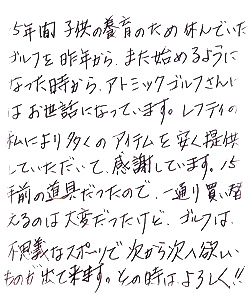 5年間子供の養育のため休んでいた
ゴルフを昨年から、また始めるように
なった時から、アトミックゴルフさんに
はお世話になっています。レフティの
私により多くのアイテムを安く提供
していただいて、感謝しています。15
年前の道具だったので、一通り買い替
えるのは大変だったけど、ゴルフは、
不思義なスポーツで次から次へ欲しい
ものが出て来ます。その時は、よろしく!!